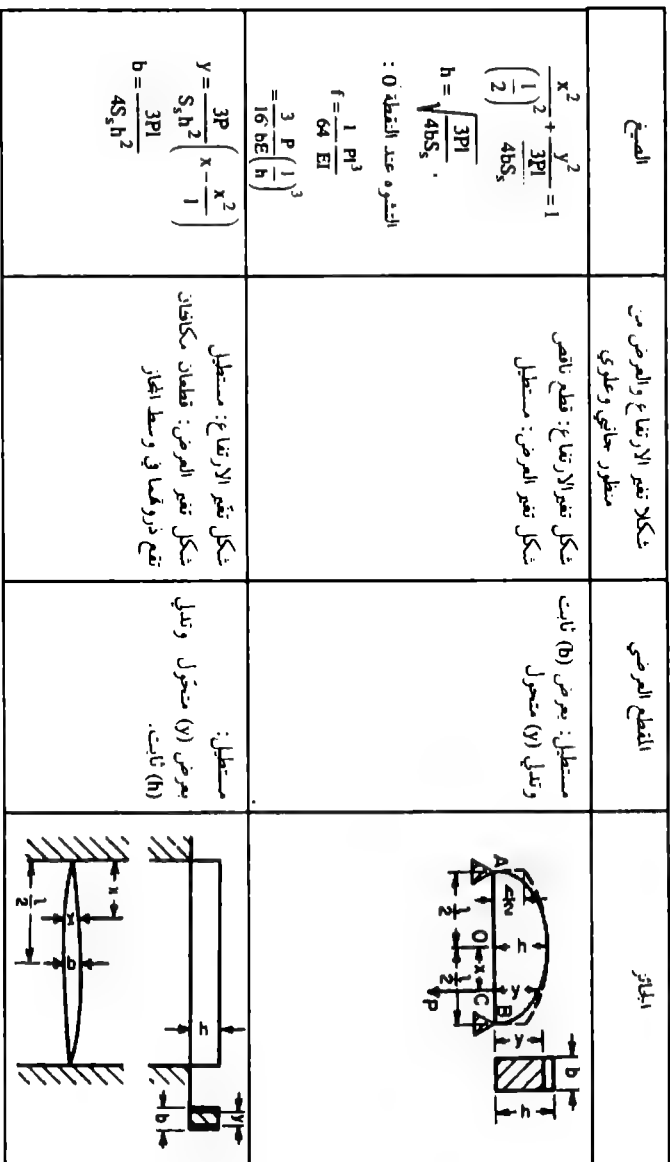 الجائز
المقطع العرضي
شكلا تغير الارتفاع والعرض من
منظور جانبي وعلوي
الصيغ
A
h
y
B
O
x
C
l/2
l/2
P
b
y
h
مستطيل: بعرض (b) ثابت
وتدلي (y) متحول
شكل تغير الارتفاع: قطع ناقص
شكل تغير العرض: مستطيل
x²/(1/2)² + y²/(3Pl/4bSₛ) = 1
h = √(3Pl/4bSₛ) .
التشوه عند النقطة O :
f = 1/64 Pl³/EI
= 3/16 P/bE (l/h)³
x
l/2
h
y
b
y
b
مستطيل:
بعرض (y) متحول وتدلي
(h) ثابت.
شكل تغير الارتفاع: مستطيل
شكل تغير العرض: قطعان مكافئان
تقع ذروتهما في وسط المجاز
y = 3P/Sₛh² (x - x²/l)
b = 3Pl/4Sₛh²